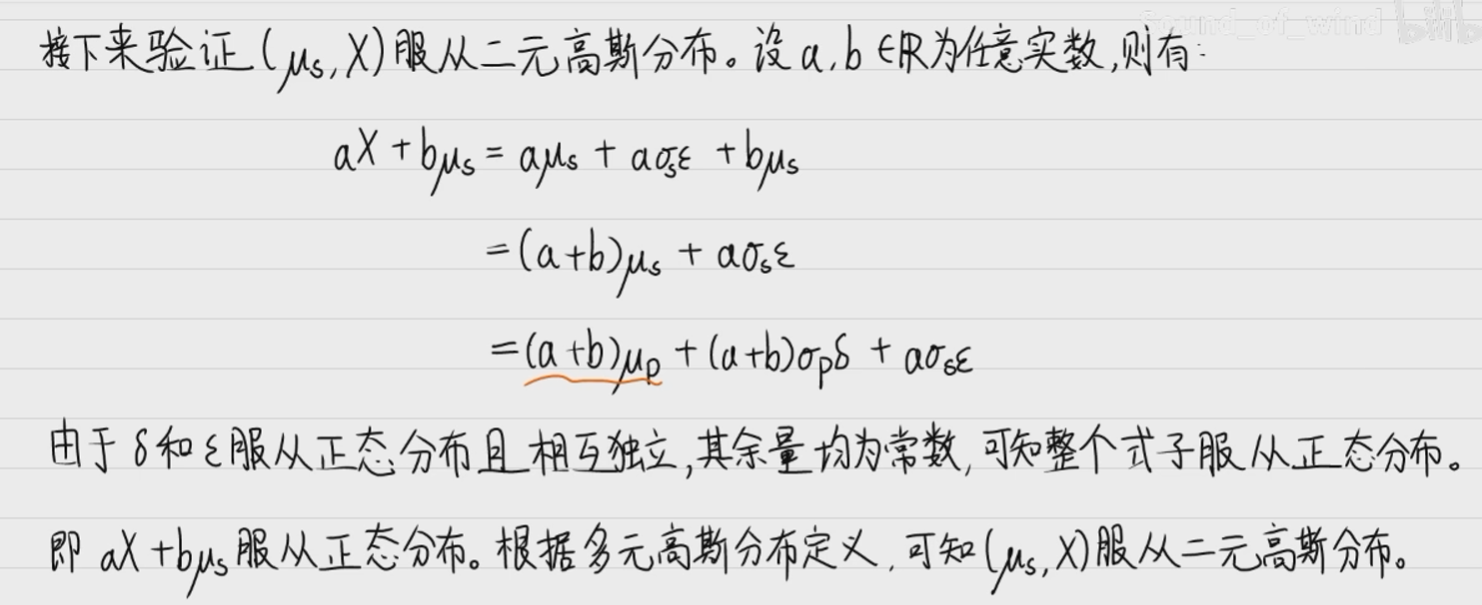 Sound_of_wind bilibili
接下来验证(μₛ,X)服从二元高斯分布。设a,b∈ℝ为任意实数,则有:
aX+bμₛ=aμₛ+aσₛε+bμₛ
=(a+b)μₛ+aσₛε
=(a+b)μₚ+(a+b)σₚδ+aσₛε
由于δ和ε服从正态分布且相互独立,其余量均为常数,可知整个式子服从正态分布。
即aX+bμₛ服从正态分布。根据多元高斯分布定义,可知(μₛ,X)服从二元高斯分布。